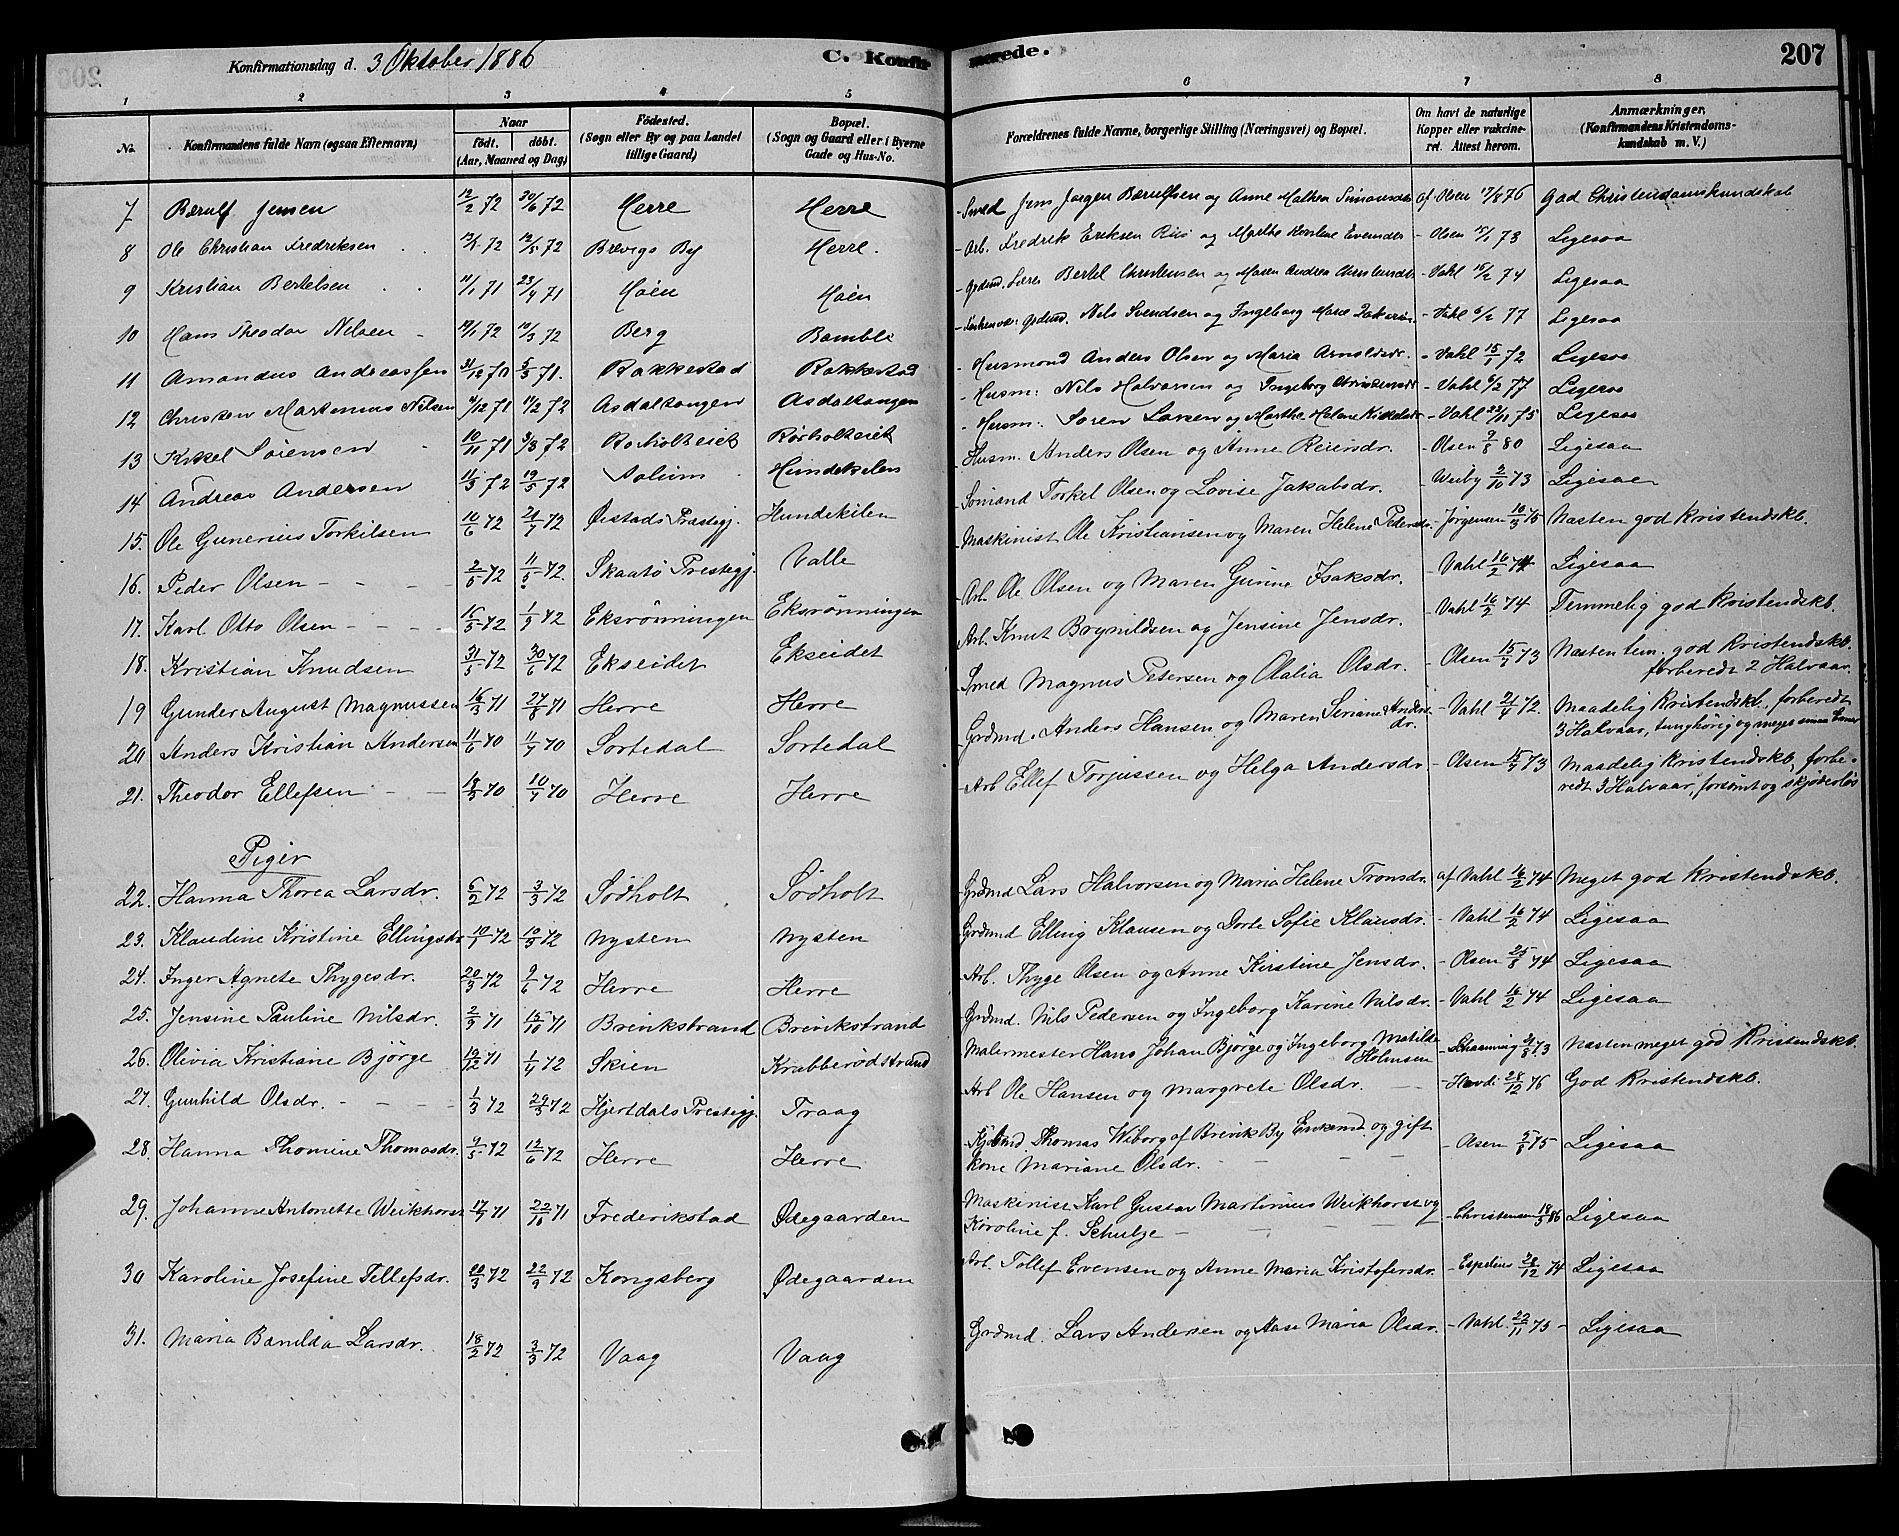 Konfirmationsdag d. 3 Oktober 1886
C. Konfirmerede.
207
1 2 3 4 5 6 7 8
No. Konfirmandens fulde Navn (ogsaa Efternavn) Naar födt. döbt. (Aar, Maaned og Dag.) Födested. (Sogn eller By og paa Landet tillige Gaard.) Bopæl. (Sogn og Gaard eller i Byerne Gade og Hus-No. Forældrenes fulde Navne, borgerlige Stilling (Næringsvei) og Bopæl. Om havt de naturlige Kopper eller vakcineret. Attest herom. Anmærkninger. (Konfirmandens Kristendomskundskab m. V.)
7 Bærulf Jensen 12/2 72 30/6 72 Herre Herre Smed Jens Jørgen Bærulfsen og Anne Mathea Simonsdr af Olsen 17/8 76 God Christendomskundskab
8 Ole Christian Fredriksen 72 12/5 72 Brevigs By Herre. Arb. Fredrik Eriksen og Marthe Evensdr - Olsen 15/1 73 Ligesaa
9 Kristian Bertelsen 11/1 71 23/4 71 Høen Høen Bertel Christensen og Maren Andrea - Vahl 16/2 74 Ligesaa
10 Hans Theodor Nilsen - 72 10/3 72 Berg Bamble Grdmd. Nils Svendsen og Ingeborg Marie - Vahl 6/2 77 Ligesaa
11 Amandus Andreassen 31/12 70 5/3 71. Rakkestad Rakkestad - Husmand Anders Olsen og Maria Arnoldsdr. - Vahl 15/1 72 Ligesaa
12 Christen Martinius Nilsen 4/12 71 11/2 72 Asdaltangen Asdaltangen - Husm: Nils Halvorsen og Ingeborg Christensdr - Vahl 6/2 77 Ligesaa
13 Kittel Sörensen 10/11 71 3/3 72 Rorholteiet Rørholteiet - Husm: Soren Larsen og Marthe Helene Kittelsdr - Vahl 23/11 75 Ligesaa
14 Andreas Andersen 11/3 72 19/5 72 Solum Hundekilen Husm. Anders Olsen og Anne Reiersdr. - Olsen 9/5 80 Ligesaa
15. Ole Gunerius Torkilsen 10/6 72 21/7 72 Øiestads Prestegj. Hundekilen Sömand Torkel Olsen og Lovise Jakobsdr. - Weiby 2/10 73 Ligesaa
16. Peder Olsen - - - 2/5 72 11/5 72. Skaatö Prestegj. Valle Maskinist Ole Kristiansen og Maren Helene Pedersdr. - Jørgensen 10/3 75 Næsten god Kristendskb.
17. Karl Otto Olsen - - - 16/5 72 1/9 72 Eksrönningen Eksrönningen Arb. Ole Olsen og Maren Gurine Isaksdr. - Vahl 16/2 74 Ligesaa
18. Kristian Knudsen 31/5 72 30/6 72 Ekseidet Ekseidet Arb. Knut Brynildsen og Jensine Jensdr. - Vahl 16/2 74 Temmelig god Kristendskb.
19 Gunder August Magnussen 16/3 71 27/8 71 Herre Herre Smed Magnus Petersen og Olalia Olsdr. - Olsen 15/7 73 Næsten tem. god Kristendskb. forberedt 2 Halvaar.
20 Anders Kristian Andersen 11/6 70 11/9 70 Sortedal Sortedal Grdmd. Anders Hansen og Maren Seriane Andersdr. - Vahl 21/4 72. Maadelig Kristendskb. forberedt 3 Halvaar, tunghörig og meget
21. Theodor Ellefsen - - 18/3 70 10/7 70 Herre Herre Arb Ellef Torjussen og Helga Andersdr - Olsen 15/7 73 Maadelig Kristendskb, forberedt 3 Halvaar, forsömt og skjödeslös
Piger
22. Hanna Thorea Larsdr. 6/2 72 3/3 72 Södholt Södholt Grdmd Lars Halvorsen og Maria Helene Tronsdr. af Vahl 16/2 74 Meget god Kristendskb.
23. Klaudine Kristine Ellingsdr 10/1 72 10/3 72 Nysten Nysten Grdmd Elling Klausen og Dorte Sofie Klausdr. - Vahl 16/2 74 Ligesaa
24. Inger Agnete Thygesdr. 20/3 72 9/6 72 Herre Herre Arb. Thyge Olsen og Anne Kirstine Jensdr. - Olsen 25/8 74 Ligesaa
25. Jensine Pauline Nilsdr. 2/9 71 15/10 71 Brevikstrand Brevikstrand Grdmd. Nils Pedersen og Ingeborg Karine Nilsdr. - Vahl 16/2 74 Ligesaa
26. Olivia Kristiane Bjørge 12/12 71 1/4 72 Skien Krabberødstrand Malermester Hans Johan Bjørge og Ingeborg Matilde Holmsen - Schanning 73 Næsten meget god Kristendskb.
27. Gunhild Olsdr. - - - 1/3 72 29/3 72 Hjertdals Prestegj. Traag Arb Ole Hansen og Margrete Olsdr. - Hovd. 28/12 76 God Kristendskb.
28. Hanna Thomine Thomasdr. 9/5 72 12/6 72 Herre Herre Thomas Wiborg af Brevik By Enkemd. og gift Kone Mariane Olsdr. - - - - Olsen 75 Ligesaa
29. Johanne Antonette Weikhorst 17/9 71 22/10 71 Frederikstad Ødegaarden Maskinist Karl Gustav Martinius Weikhorst og Karoline f. Schulze - - Christensen 18/5 86 Ligesaa
30 Karoline Josefine Tellefsdr. 20/3 72 22/9 72 Kongsberg Ødegaarden Arb. Tollef Evensen og Anne Maria Kristofersdr. - Espelins 28/12 74 Ligesaa
31. Maria Barnilda Larsdr. 18/2 72 3/3 72 Vaag Vaag Grdmd. Lars Andersen og Aase Maria Olsdr. - Vahl. 22/11 75 - Ligesaa